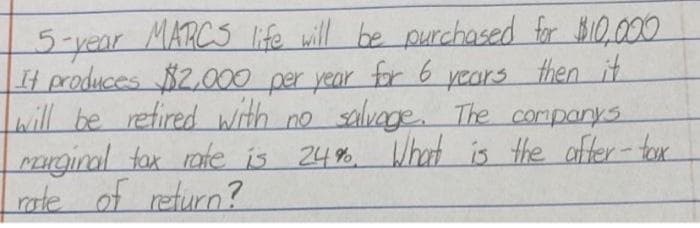 5-year MARCS life will be purchased for $10,000
It produces $2,000 per year for 6 years then it
will be retired with no salvage. The companys
marginal tax rate is 24%. What is the after-tax
rate of return?